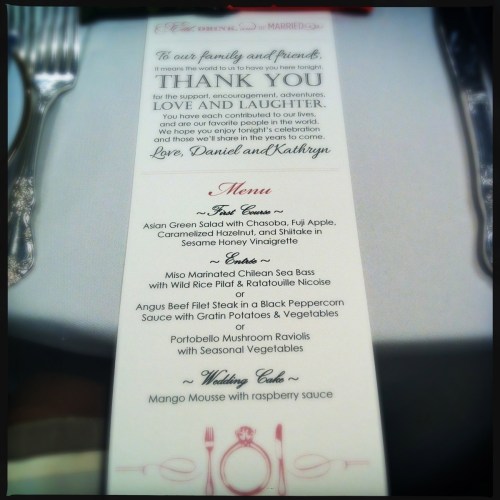 Eat, DRINK, and be MARRIED
To our family and friends,
It means the world to us to have you here tonight.
THANK YOU
for the support, encouragement, adventures,
LOVE AND LAUGHTER.
You have each contributed to our lives,
and are our favorite people in the world.
We hope you enjoy tonight's celebration
and those we'll share in the years to come.
Love, Daniel and Kathryn
Menu
~ First Course ~
Asian Green Salad with Chasoba, Fuji Apple,
Caramelized Hazelnut, and Shiitake in
Sesame Honey Vinaigrette
~ Entrée ~
Miso Marinated Chilean Sea Bass
with Wild Rice Pilaf & Ratatouille Nicoise
or
Angus Beef Filet Steak in a Black Peppercorn
Sauce with Gratin Potatoes & Vegetables
or
Portobello Mushroom Raviolis
with Seasonal Vegetables
~ Wedding Cake ~
Mango Mousse with raspberry sauce